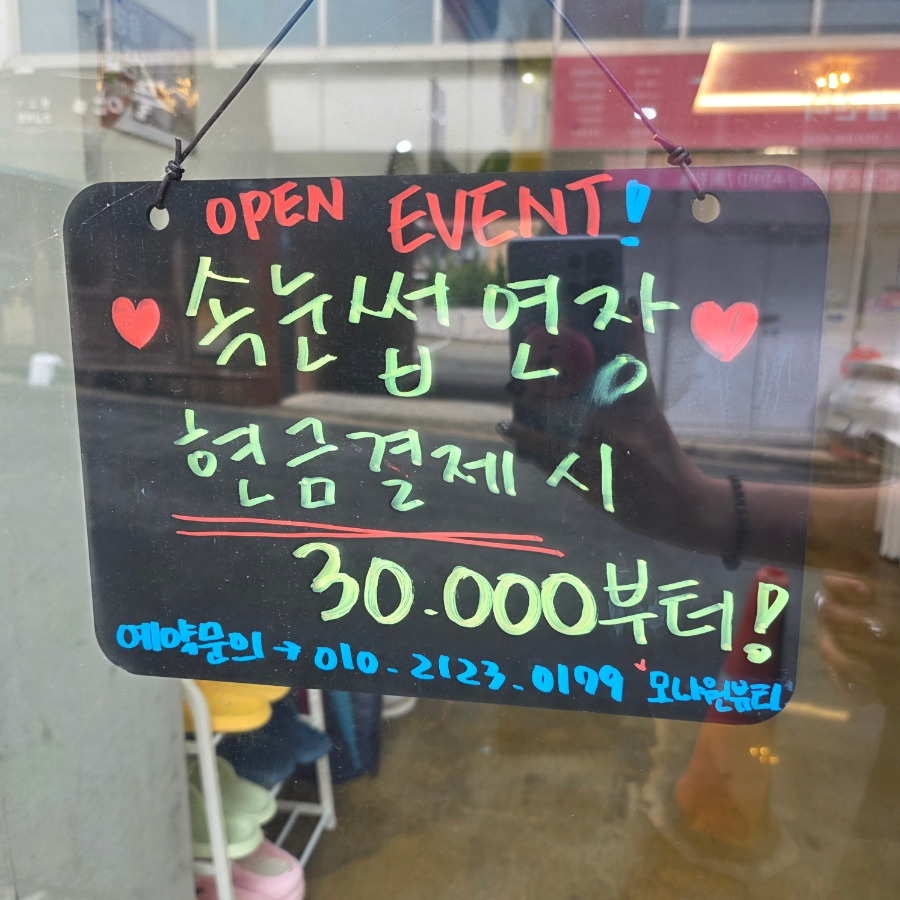 OPEN EVENT!
속눈썹 연장
현금결제 시
30.000부터!
예약문의 → 010-2123-0179 모나원뷰티